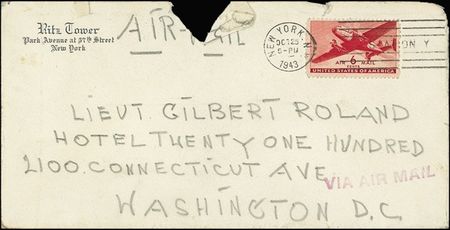 Ritz Tower
Park Avenue at 57th Street
New York
AIR-MAIL
NEW YORK, N.Y.
OCT 25
5-PM
1943
AIR MAIL
6
CENTS
UNITED STATES OF AMERICA
LIEUT. GILBERT ROLAND
HOTEL TWENTY ONE HUNDRED
2100. CONNECTICUT AVE.
VIA AIR MAIL
WASHINGTON D.C.